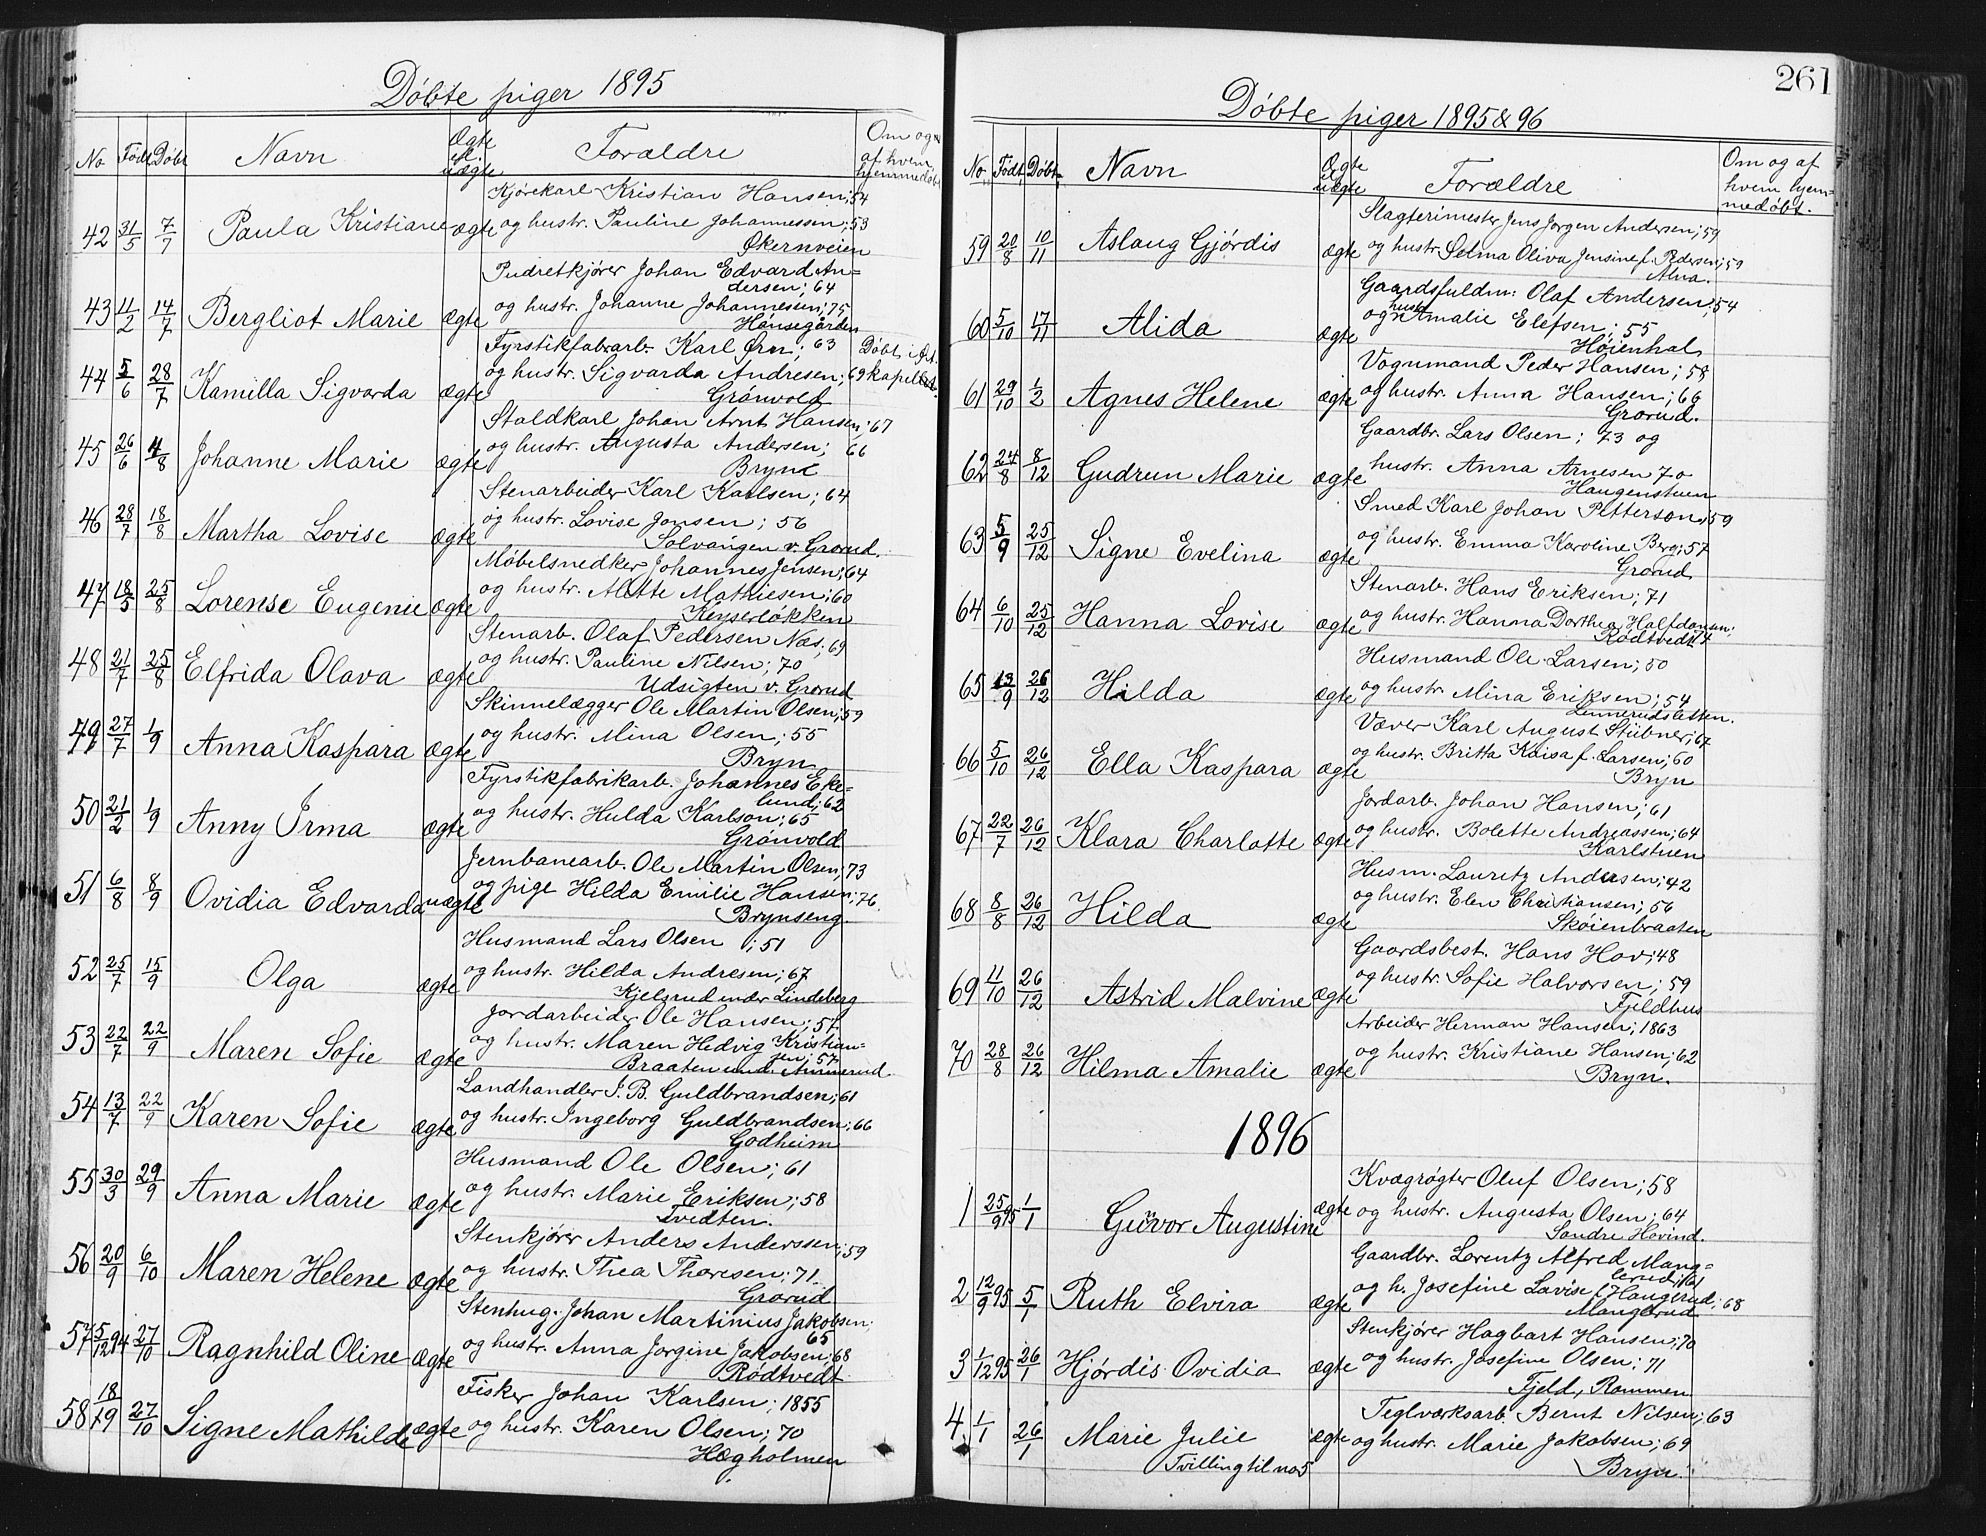 Døbte piger 1895
No Født Døbt Navn Ægte el. uægte Forældre Om og af hvem hjemmedøbt
Kjørekarl Kristian Hansen; 54
42 31/5 7/7 Paula Kristiane ægte og hustr. Pauline Johannessen; 53
Økernveien
Pudretkjører Johan Edvard An=
dersen; 64
43 11/2 14/7 Bergliot Marie ægte og hustr. Johanne Johannesen; 75
Hønsegården
Fyrstikfabrarb. Karl Ørn; 63 Døbt i
44 5/6 28/7 Kamilla Sigvarda ægte og hustr. Sigvarda Andresen; 69 kapellet.
Grønvold
Staldkarl Johan Arnt Hansen; 67
45 26/6 4/8 Johanne Marie ægte og hustr. Augusta Andersen; 66
Bryne
Stenarbeider Karl Karlsen; 64
46 28/7 18/8 Martha Lovise ægte og hustr. Lovise Jonsen; 56
Solvangen v. Grorud.
Møbelsnedker Johannes Jensen; 64
47 18/5 25/8 Lorense Eugenie ægte og hustr. Alette Mathiesen; 60
Keyserløkken
Stenarb. Olaf Pedersen Næs; 69
48 21/7 25/8 Elfrida Olava ægte og hustr. Pauline Nilsen; 70
Udsigten v. Grorud
Skinnelægger Ole Martin Olsen; 59
49 27/7 1/9 Anna Kaspara ægte og hustr. Mina Olsen; 55
Bryn
Fyrstikfabrikarb. Johannes Eke=
lund; 62
50 21/2 1/9 Anny Irma ægte og hustr. Hulda Karlson; 65
Grønvold
Jernbanearb. Ole Martin Olsen; 73
51 6/8 8/9 Ovidia Edvarda uægte og pige Hilda Emilie Hansen; 76.
Brynseng
Husmand Lars Olsen; 51
52 25/7 15/9 Olga ægte og hustr. Hilda Andresen; 67
Kjelsrud under Lindeberg
Jordarbeider Ole Hansen; 57
53 22/7 22/9 Maren Sofie ægte og hustr. Maren Hedvig Kristian=
sen; 57
Braaten und. Ammerud.
Landhandler J. B. Guldbrandsen; 61
54 13/7 22/9 Karen Sofie ægte og hustr. Ingeborg Guldbrandsen; 66
Godheim
Husmand Ole Olsen; 61
55 30/3 29/9 Anna Marie ægte og hustr. Marie Eriksen; 58
Tvedten.
Stenkjører Anders Anderssen; 59
56 20/9 6/10 Maren Helene ægte og hustr. Thea Thoresen; 71.
Grorud
Stenhug. Johan Martinius Jakobsen;
65
57 5/12 94 27/10 Ragnhild Oline ægte og hustr. Anna Jørgine Jakobsen; 68
Rødtvedt
Fisker Johan Karlsen; 1855
58 18/9 27/10 Signe Mathilde ægte og hustr. Karen Olsen; 70
Hægholmen
261
Døbte piger 1895 & 96
No Født Døbt Navn Ægte el. uægte Forældre Om og af hvem hjem=medøbt.
Slagterimester Jens Jørgen Andersen; 59
59 20/8 10/11 Aslaug Gjørdis ægte og hustr. Selma Oliva Jensine f. Pedersen; 59
Alna.
Gaardsfuldm: Olaf Andersen; 54
60 5/10 17/11 Alida ægte og hustr. Amalie Elefsen; 55
Høienhal
Vognmand Peder Hansen; 58
61 29/10 1/2 Agnes Helene ægte og hustr. Anna Hansen; 66
Grorud.
Gaardbr. Lars Olsen; 73 og
62 24/8 8/12 Gudrun Marie ægte hustr. Anna Arnesen 70
Haugenstuen
Smed Karl Johan Petterson; 59
63 5/9 25/12 Signe Evelina ægte og hustr. Emma Karoline Berg; 57
Grorud
Stenarb. Hans Eriksen; 71
64 6/10 25/12 Hanna Lovise ægte og hustr. Hanna Dorthea Halfdansen;
Rødtvedt 74
Husmand Ole Larsen; 50
65 13/9 26/12 Hilda ægte og hustr. Mina Eriksen; 54
Væver Karl August Stübner; 67
66 5/10 26/12 Ella Kaspara ægte og hustr. Britta Kaisa f. Larsen; 60
Bryn
Jordarb. Johan Hansen; 61
67 22/7 26/12 Klara Charlotte ægte og hustr. Bolette Andreassen; 64
Karlstuen
Husm. Lauretz Andersen; 42
68 8/8 26/12 Hilda ægte og hustr. Elen Christiansen; 56
Skøienbraaten
Gaardsbest. Hans Hov; 48
69 11/10 26/12 Astrid Malvine ægte og hustr. Sofie Halvorsen; 59
Fjeldhus
Arbeider Herman Hansen; 1863
70 28/8 26/12 Hilma Amalie ægte og hustr. Kristiane Hansen; 62
Bryn.
1896
Kvægrøgter Oluf Olsen; 58
1 25/9 95 1/1 Guvor Augustine ægte og hustr. Augusta Olsen; 64
Søndre Hovind.
Gaardbr. Lorentz Alfred Mang=
lerud; 61
2 12/9 95 5/1 Ruth Elvira ægte og h. Josefine Lovise f. Haugerud; 68
Manglerud
Stenkjører Hagbart Hansen; 70
3 1/12 95 26/1 Hjørdis Ovidia ægte og hustr. Josefine Olsen; 71
Fjeld, Rommen
Teglværksarb. Bernt Nilsen; 63
4 1/1 26/1 Marie Julie ægte og hustr. Marie Jakobsen; 69
Tvilling til no 5 Bryn.